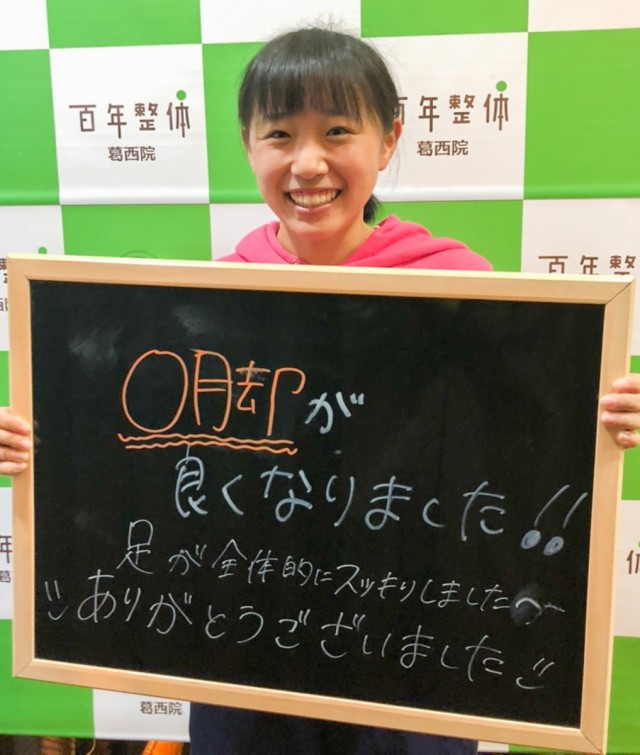 百年整体
葛西院
百年整体
葛西院
百年整
O脚が
良くなりました!!
足が全体的にスッキリしました
ありがとうございました
葛西院